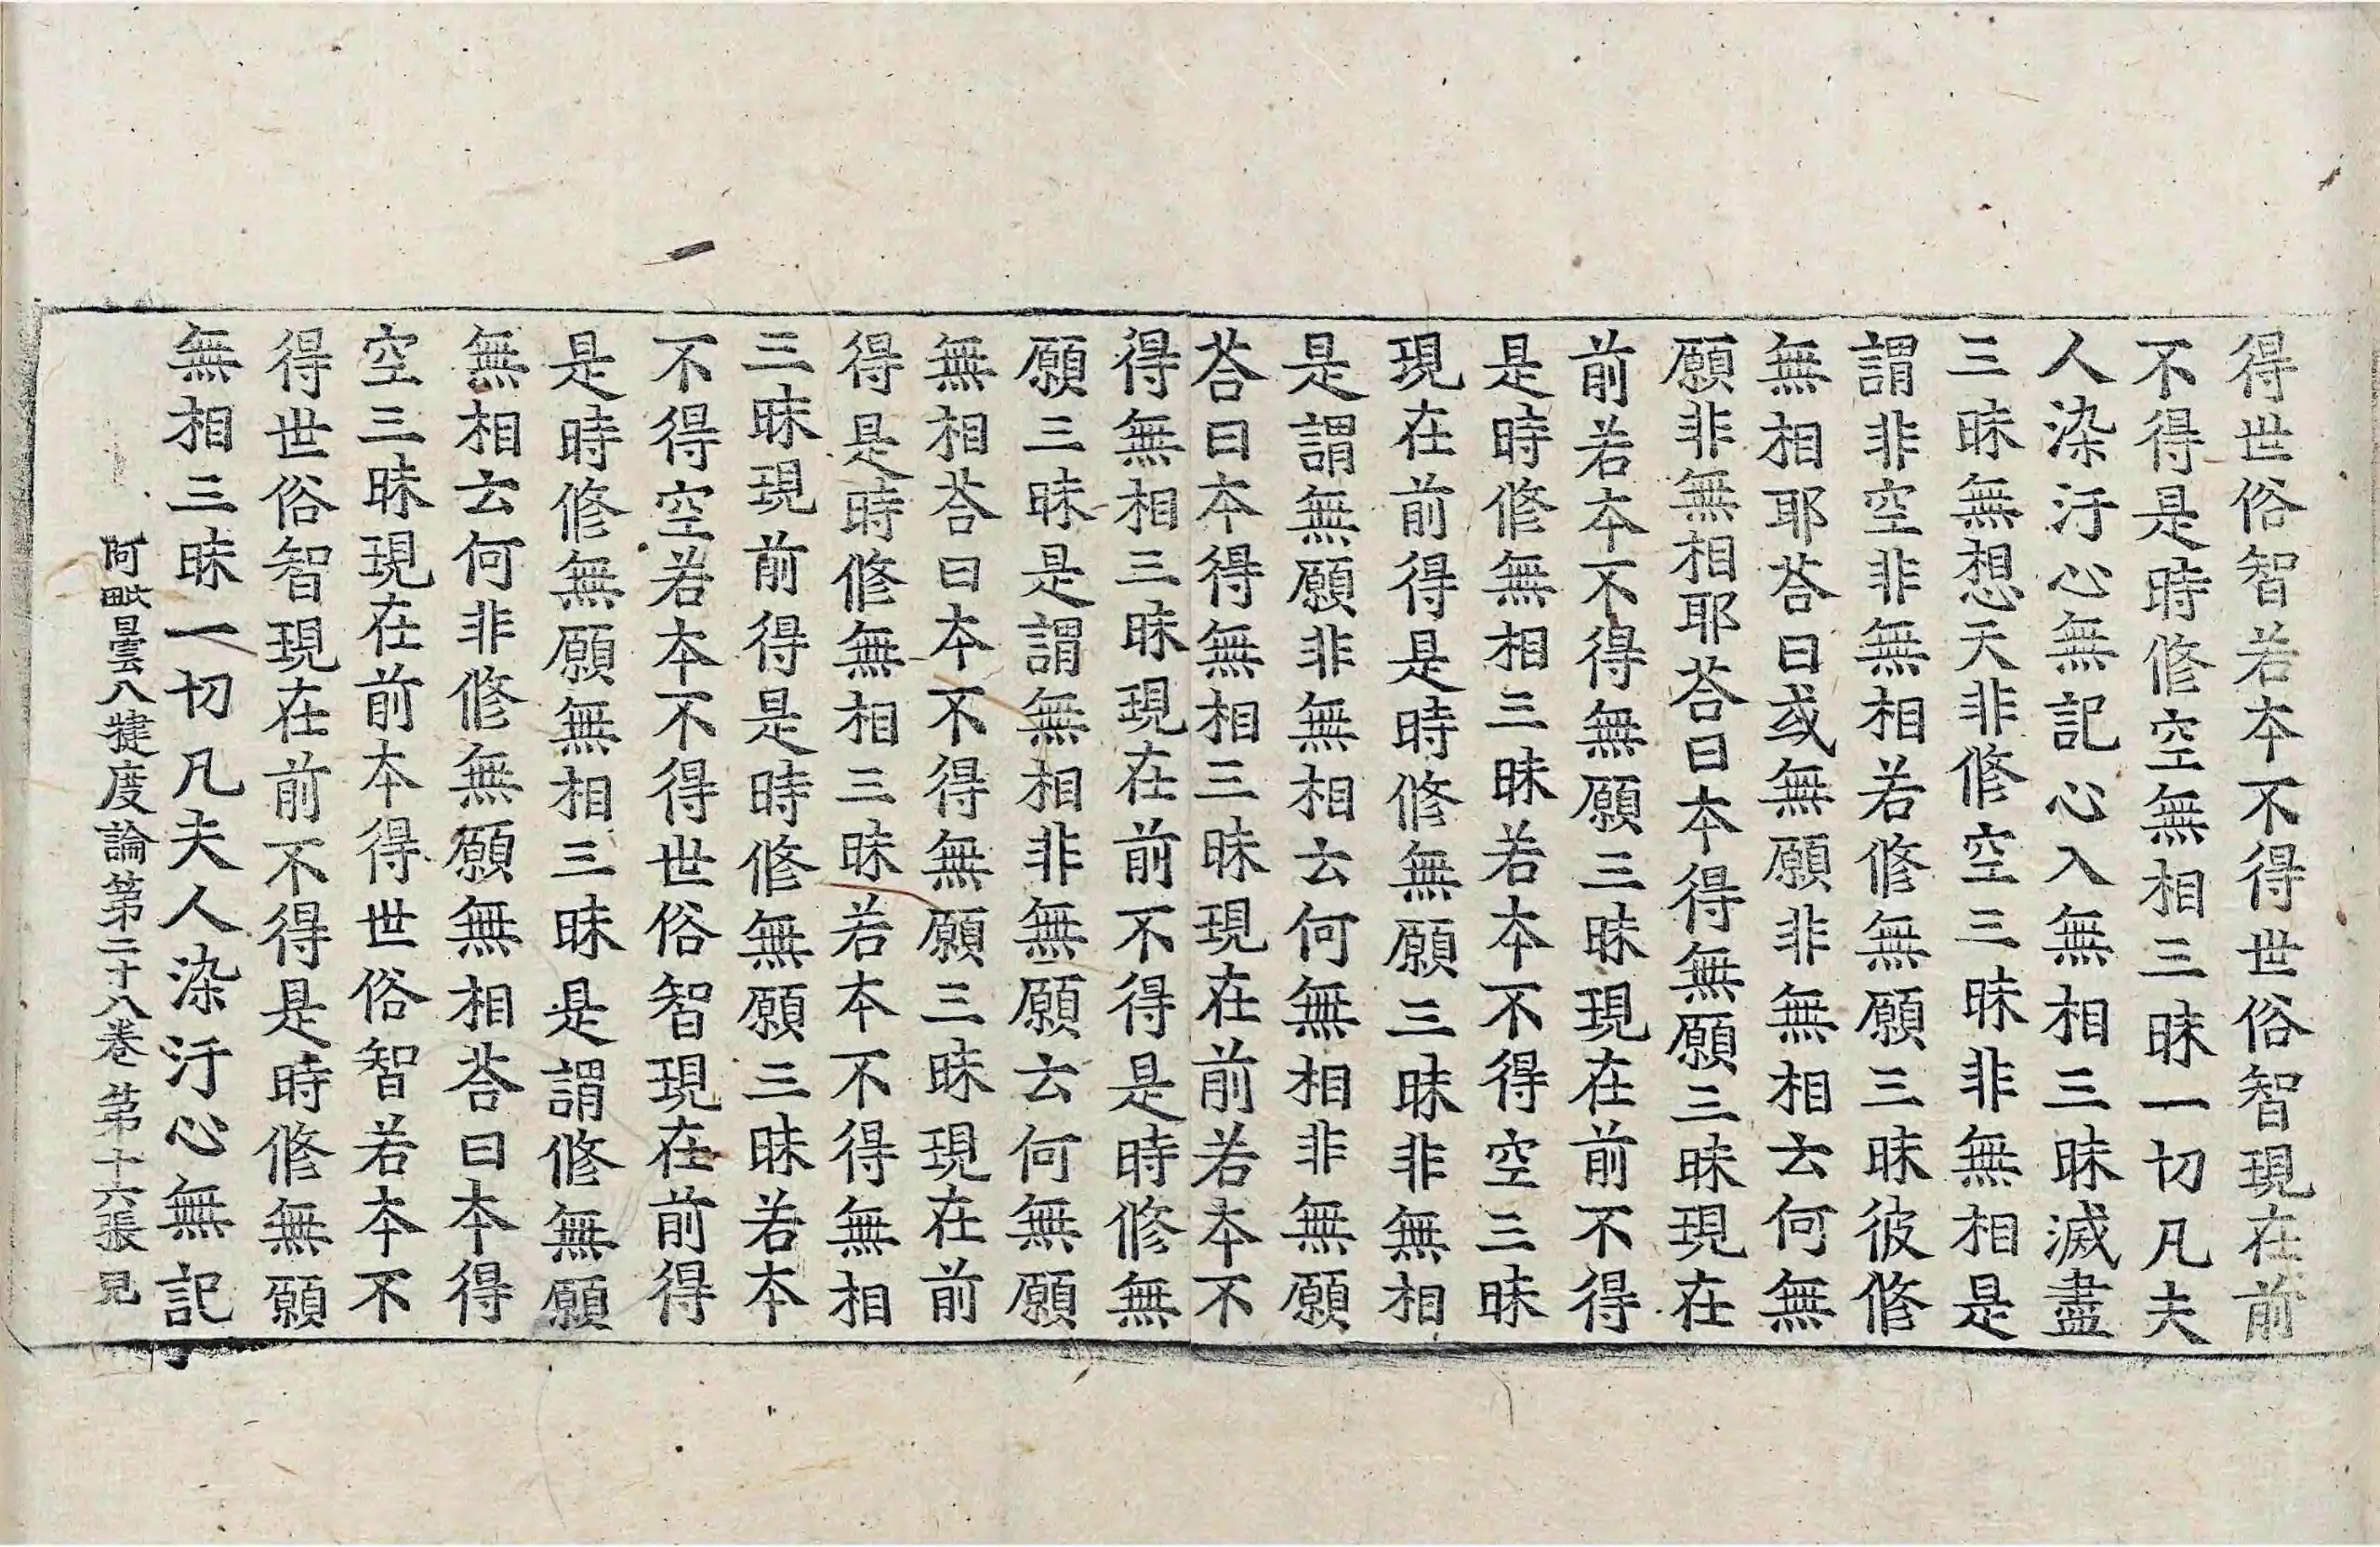 得世俗智若本不得世俗智現在前
不得是時修空無相三昧一切凡夫
人染汙心無記心入無相三昧滅盡
三昧無想天非修空三昧非無相是
謂非空非無相若修無願三昧彼修
無相耶荅曰或無願非無相云何無
願非無相耶荅曰本得無願三昧現在
前若本不得無願三昧現在前不得
是時修無相三昧若本不得空三昧
現在前得是時修無願三昧非無相
是謂無願非無相云何無相非無願
荅曰本得無相三昧現在前若本不
得無相三昧現在前不得是時修無
願三昧是謂無相非無願云何無願
無相荅曰本不得無願三昧現在前
得是時修無相三昧若本不得無相
三昧現前得是時修無願三昧若本
不得空若本不得世俗智現在前得
是時修無願無相三昧是謂修無願
無相云何非修無願無相荅曰本得
空三昧現在前本得世俗智若本不
得世俗智現在前不得是時修無願
無相三昧一切凡夫人染汙心無記
阿毗曇八犍度論第二十八卷 第十六張 見